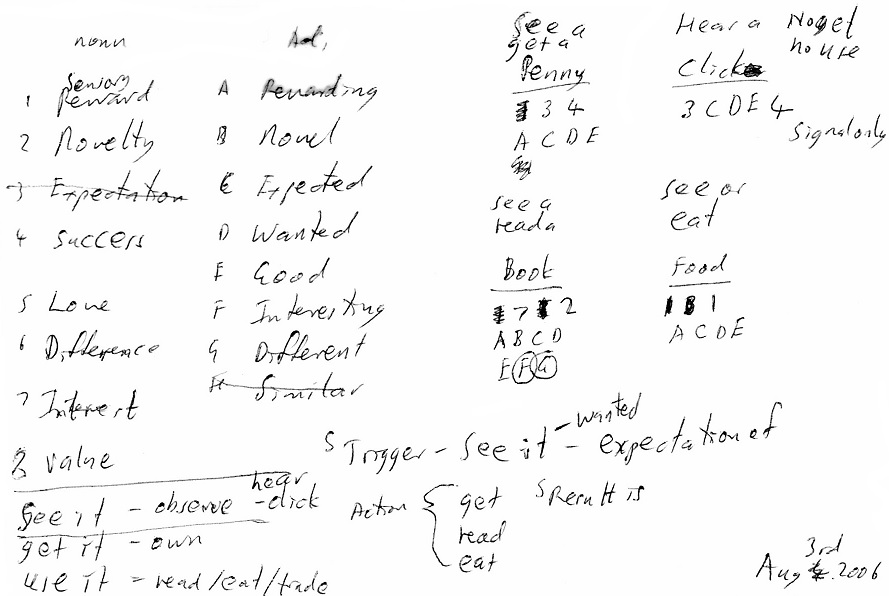 noun
Sensory
1 Reward
2 Novelty
3 Expectation
4 Success
5 Love
6 Difference
7 Interest
8 value
Adj,
A Rewarding
B Novel
C Expected
D Wanted
E Good
F Interesting
G Different
H Similar
See a
get a
Penny
3 4
A C D E
see a
read a
Book
7 2
A B C D
E F G
Hear a
Click
3 C D E 4
no use
Signal only
see or
eat
Food
1
A C D E
S Trigger - see it - expectation of
wanted
Action { get
read
eat
S Result is
see it - observe - click
hear
get it - own
use it = read/eat/trade
3rd
Aug 2006